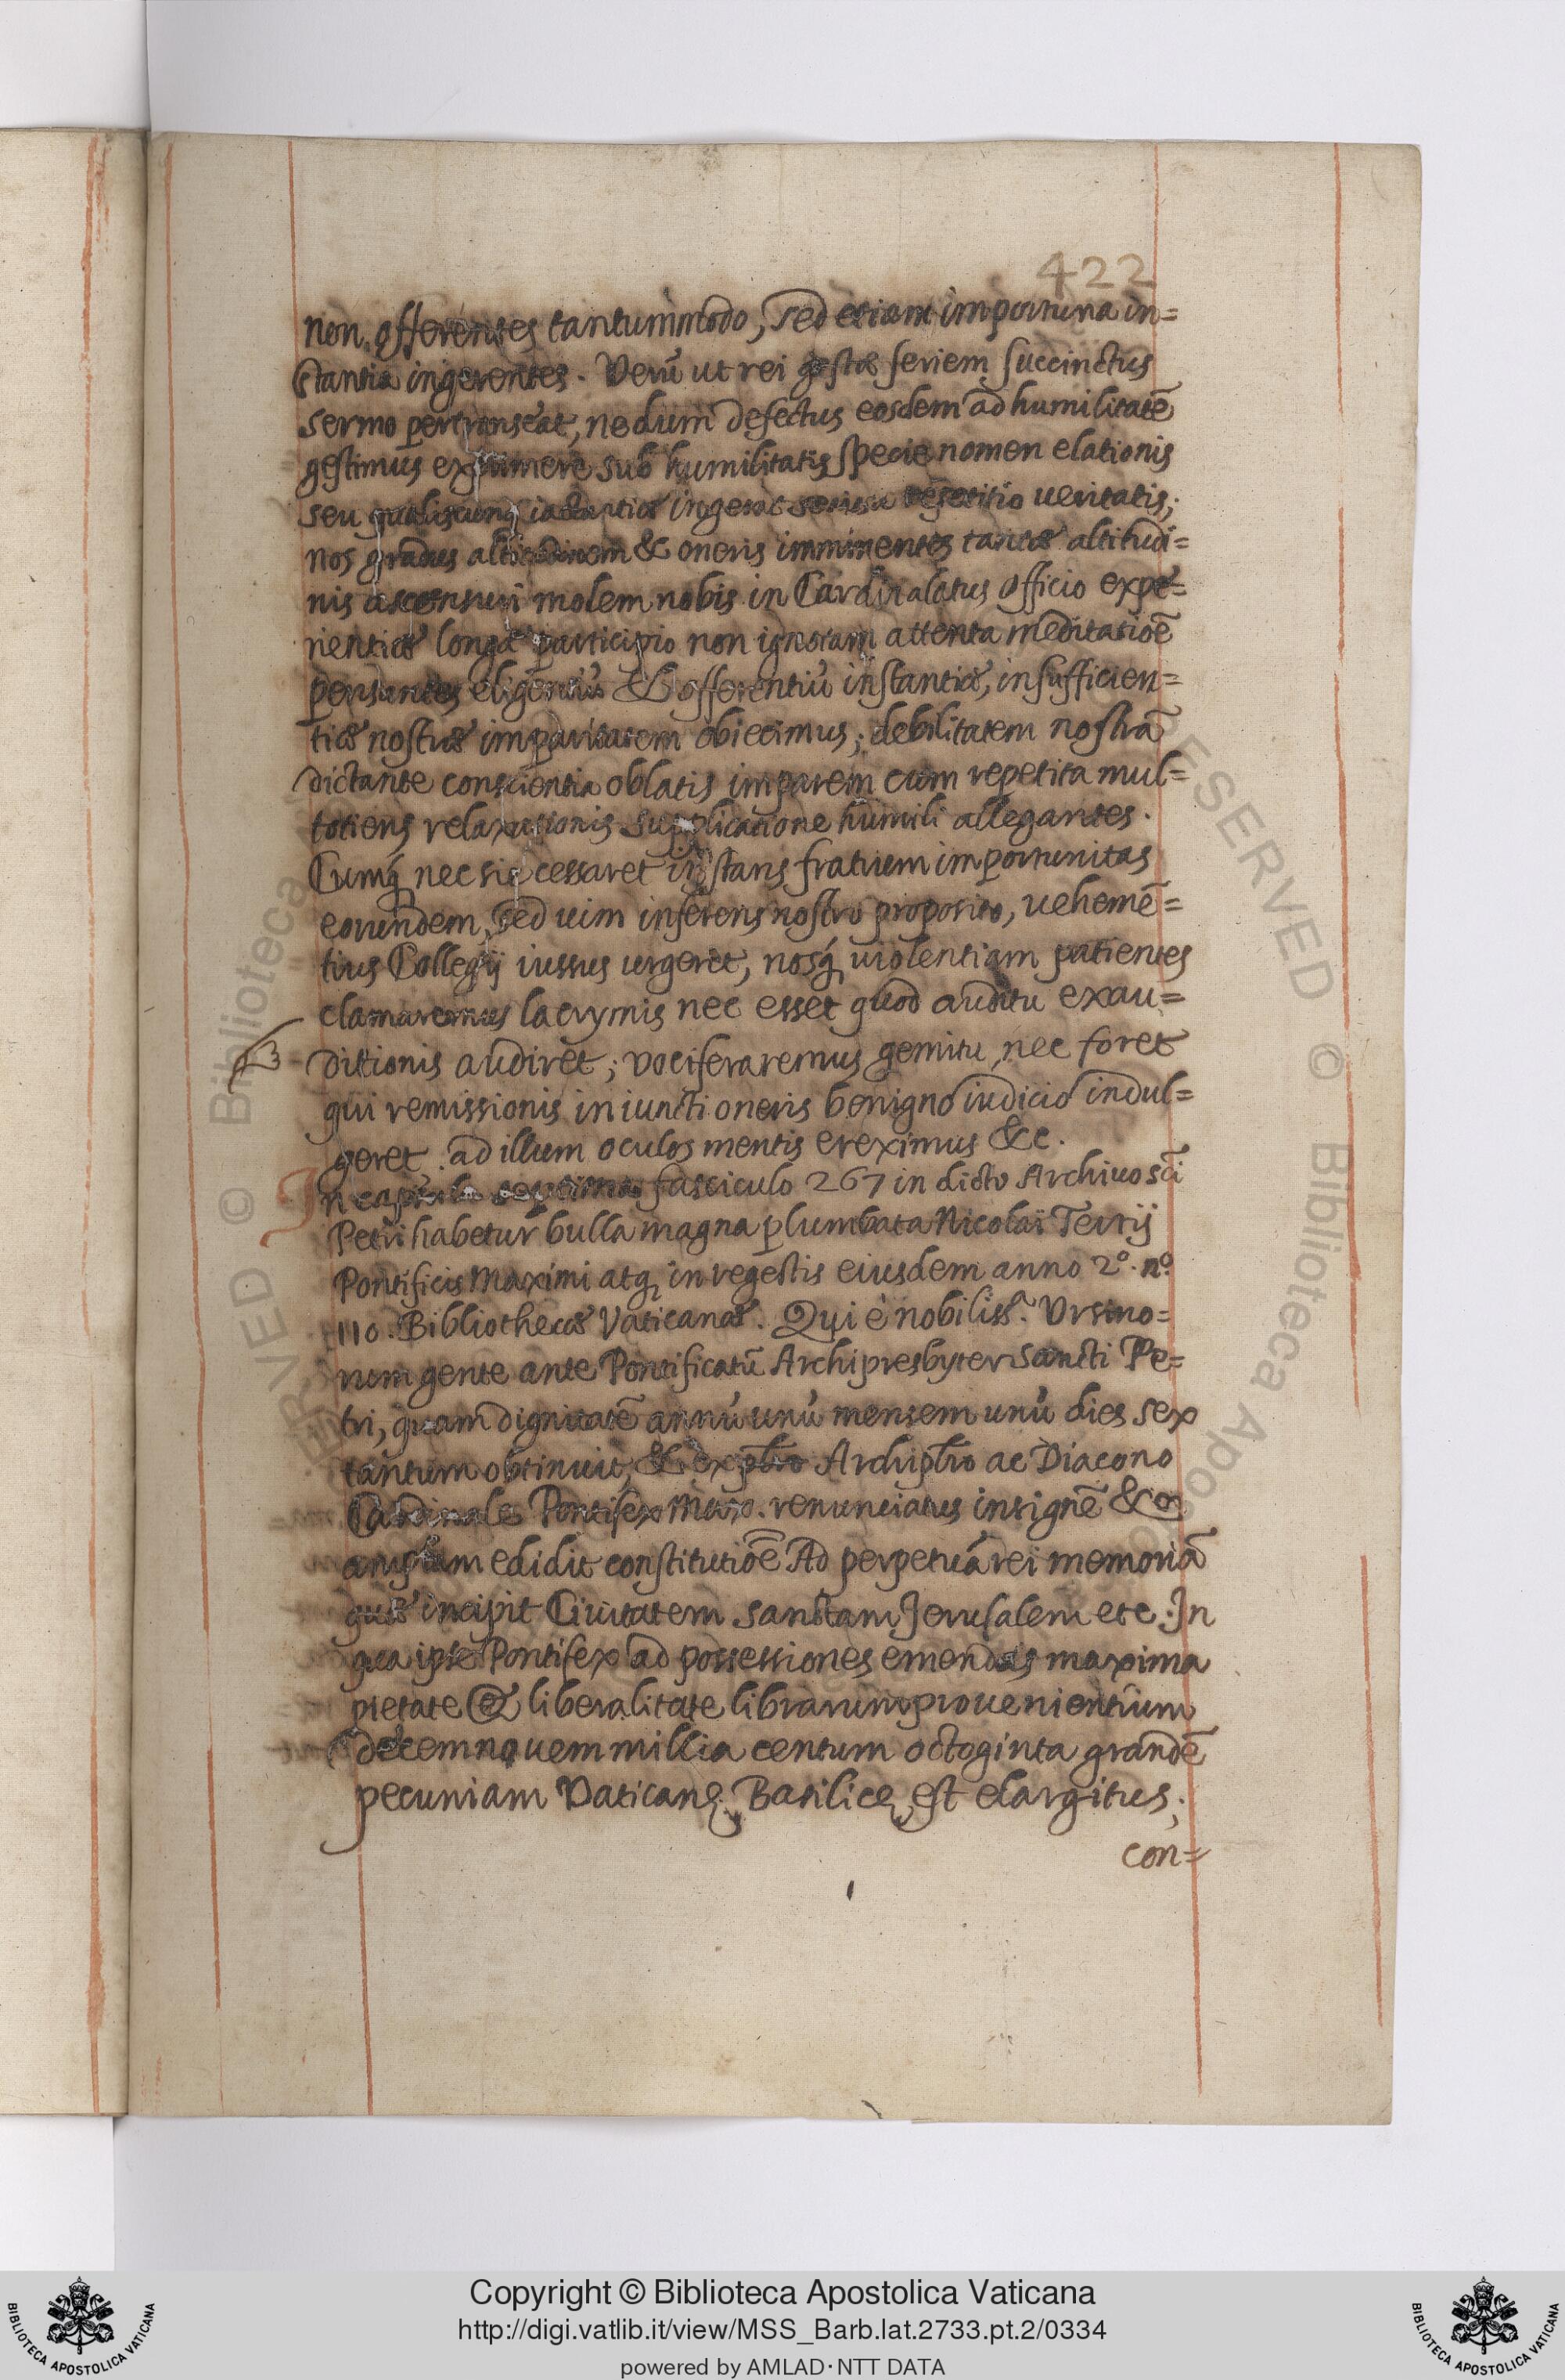 422
non offerentes tantummodo, sed etiam importuna in=
stantia ingerentes. Verũ ut rei gestæ seriem succinctus
sermo pertranseat, nedum defectus eosdem ad humilitatẽ
gestimus exprimere sub humilitatis specie nomen elationis
seu qualiscunq iactantiæ ingerat repetitio ueritatis;
nos gradus altitudinem & oneris imminentes tantæ altitudi=
nis ascensui molem nobis in Cardinalatus officio expe=
rientiæ longæ participio non ignotam attenta meditatiõe
pensantes eligentiũ & offerentiũ instantiæ, insufficien=
tiæ nostræ imparitatem obiecimus; debilitatem nostrã
dictante conscientia oblatis imparem cum repetita mul=
totiens relaxationis supplicatione humili allegantes.
Cumq nec sic cessaret instans fratrum importunitas
eorundem, sed uim inferens nostro proposito, uehemẽ=
tius Collegij iussus urgeret, nosq uiolentiam patientes
clamaremus lacrymis nec esset quod auditu exau=
ditionis audiret; vociferaremus gemitu, nec foret
qui remissionis iniuncti oneris benigno iudicio indul=
geret. ad illum oculos mentis ereximus &c.
In capsula septima fasciculo 267 in dicto Archiuo sc̃i
Petri habetur bulla magna plumbata Nicolai Tertij
Pontificis Maximi atq in regestis eiusdem anno 2º. nº.
110. Bibliothecæ Vaticanæ. Qui è nobiliss. Vrsino=
rum gente ante Pontificatũ Archipresbyter sancti Pe=
tri, quam dignitatẽ annũ unũ mensem unũ dies sex
tantum obtinuit, & ex pb̃ro Archipb̃ro ac Diacono
Cardinale Pontifex Max. renunciatus insignẽ &
amplam edidit constitutiõe Ad perpetuã rei memoriã
quæ incipit Ciuitatem sanctam Jerusalem etc. In
qua ipse Pontifex ad possessiones emendas maxima
pietate & liberalitate librarum prouenientium
decemnouem millia centum octoginta grandẽ
pecuniam Vaticanę Basilicę est elargitus;
con=
Copyright © Biblioteca Apostolica Vaticana
http://digi.vatlib.it/view/MSS_Barb.lat.2733.pt.2/0334
powered by AMLAD·NTT DATA
BIBLIOTECA APOSTOLICA VATICANA
BIBLIOTECA APOSTOLICA VATICANA